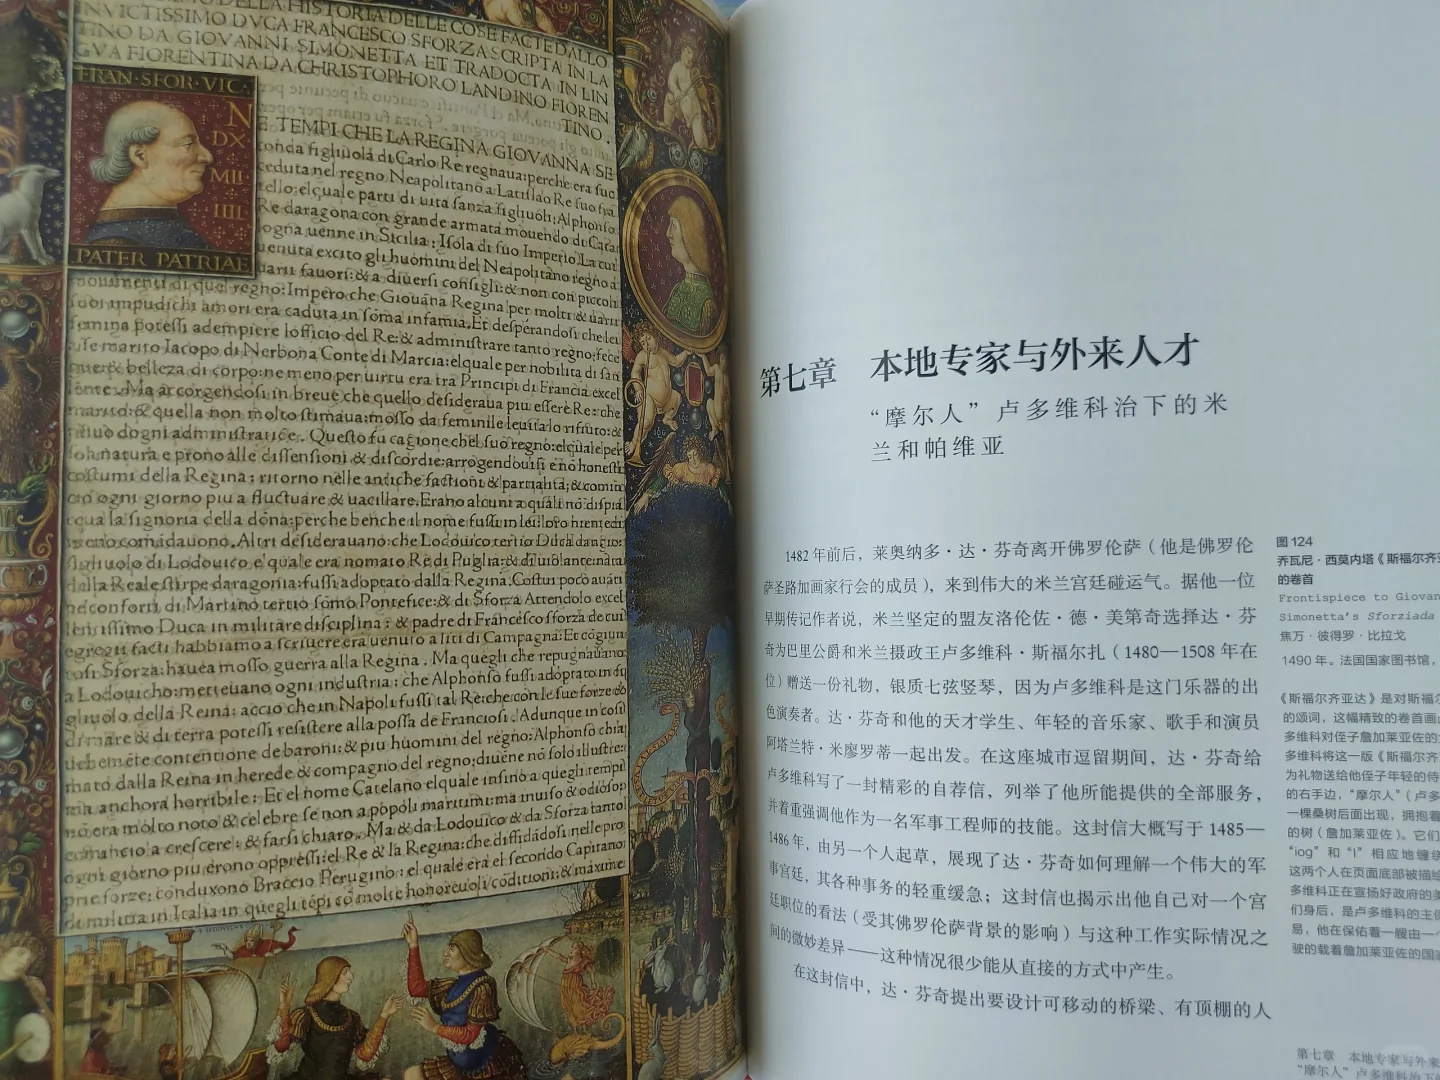 DELLA HISTORIA DELLE COSE FACTE DALLO
INVICTISSIMO DVCA FRANCESCO SFORZA SCRIPTA IN LA
TINO DA GIOVANNI SIMONETTA ET TRADOCTA IN LIN
GVA FIORENTINA DA CHRISTOPHORO LANDINO FIOREN
TINO.
FRAN·SFOR·VIC·
N
DX
MII
IIII
PATER PATRIAE
E TEMPI CHE LA REGINA GIOVANNA SE
conda figliuola di Carlo Re regnaua: perche era suc
ceduta nel regno Neapolitano a Latislao Re suo fra
tello: elquale parti di uita sanza figliuoli: Alphonso
Re daragona con grande armata mouendo di Catar
ogna uenne in Sicilia: Isola di suo Imperio. La cui
uenuta excito gli huomini del Neapolitano regno a
uarii fauori: & a diuersi consigli: & non con piccoli
mouimenti di quel regno: Impero che Giouána Regina per molti & uarii
suoi impudichi amori era caduta in sōma infamia. Et desperandosi che lei
femina potessi adempiere lofficio del Re: & administrare tanto regno: fece
marito Iacopo di Nerbona Conte di Marcia: elquale per nobilita di san
gue: & belleza di corpo: ne meno per uirtu era tra Principi di Francia excel
lente. Ma accorgendosi in breue che quello desideraua piu essere Re: che
marito: & quella non molto stimaua: mosso da feminile leuita lo rifiuto: &
priuo dogni administratiōe. Questo fu cagione chel suo regno: elquale per
sola natura e prono alle dissensioni & discordie: arrogendouisi e nō honesti
costumi della Regina: ritorno nelle antiche factioni & partialita: & comin
cio ogni giorno piu a fluctuare & uacillare. Erano alcuni a quali nō dispia
ceua la signoria della dōna: perche benche il nome fussi in lei: loro
comādauono. Altri desiderauano: che Lodouico tertio Duca dangio:
figliuolo di Lodouico e'quale era nomato Re di Puglia: &
dalla Reale stirpe daragona: fussi adoptato dalla Regina. Costui poco auāti
ne conforti di Martino tertio sōmo Pontefice: & di Sforza Attendolo excel
lentissimo Duca in militare disciplina: & padre di Frācesco sforza de cui
egregii facti habbiamo a scriuere era uenuto a liti di Campagna: Et cōgiun
tosi Sforza: hauea mosso guerra alla Regina. Ma quegli che repugnauano
a Lodouicho: metteuano ogni industria: che Alphonso fussi adoptato in
figliuolo della Reina: accio che in Napoli fussi tal Re: che con le sue forze &
di mare & di terra potessi resistere alla possa de Franciosi. Adunque in cosi
uehemēte contentione de baroni: & piu huomini del regno: Alphonso chia
mato dalla Reina in herede & compagno del regno: diuēne nō solo illustre:
ma anchora horribile: Et el nome Catelano elquale infino a quegli tempi
nō era molto noto & celebre se non a popoli maritimi: ma inuiso & odioso:
comincio a crescere: & farsi chiaro. Ma & da Lodouico & da Sforza tanto
ogni giorno piu erono oppressi: el Re & la Regina: che diffidādosi nelle pro
prie forze: conduxono Braccio Perugino: el quale era el secondo Capitano
di militia in Italia in quegli tēpi cō molte honoreuoli cōditioni: & maxime
第七章 本地专家与外来人才
“摩尔人”卢多维科治下的米
兰和帕维亚
1482 年前后，莱奥纳多·达·芬奇离开佛罗伦萨（他是佛罗伦
萨圣路加画家行会的成员），来到伟大的米兰宫廷碰运气。据他一位
早期传记作者说，米兰坚定的盟友洛伦佐·德·美第奇选择达·芬
奇为巴里公爵和米兰摄政王卢多维科·斯福尔扎（1480—1508 年在
位）赠送一份礼物，银质七弦竖琴，因为卢多维科是这门乐器的出
色演奏者。达·芬奇和他的天才学生、年轻的音乐家、歌手和演员
阿塔兰特·米廖罗蒂一起出发。在这座城市逗留期间，达·芬奇给
卢多维科写了一封精彩的自荐信，列举了他所能提供的全部服务，
并着重强调他作为一名军事工程师的技能。这封信大概写于 1485—
1486 年，由另一个人起草，展现了达·芬奇如何理解一个伟大的军
事宫廷，其各种事务的轻重缓急；这封信也揭示出他自己对一个宫
廷职位的看法（受其佛罗伦萨背景的影响）与这种工作实际情况之
间的微妙差异——这种情况很少能从直接的方式中产生。
在这封信中，达·芬奇提出要设计可移动的桥梁、有顶棚的人
图 124
乔瓦尼·西莫内塔《斯福尔齐亚
的卷首
Frontispiece to Giovan
Simonetta's Sforziada
焦万·彼得罗·比拉戈
1490 年。法国国家图书馆，
《斯福尔齐亚达》是对斯福尔
的颂词，这幅精致的卷首画
多维科对侄子詹加莱亚佐的
多维科将这一版《斯福尔齐
为礼物送给他侄子年轻的侍
的右手边，“摩尔人”（卢多
一棵桑树后面出现，拥抱着
的树（詹加莱亚佐）。它们
“iog”和“l”相应地缠绕
这两个人在页面底部被描绘
多维科正在宣扬好政府的美
们身后，是卢多维科的主保
易，他在保佑着一艘由一个
驶的载着詹加莱亚佐的国家
第七章 本地专家与外来
“摩尔人”卢多维科治下的